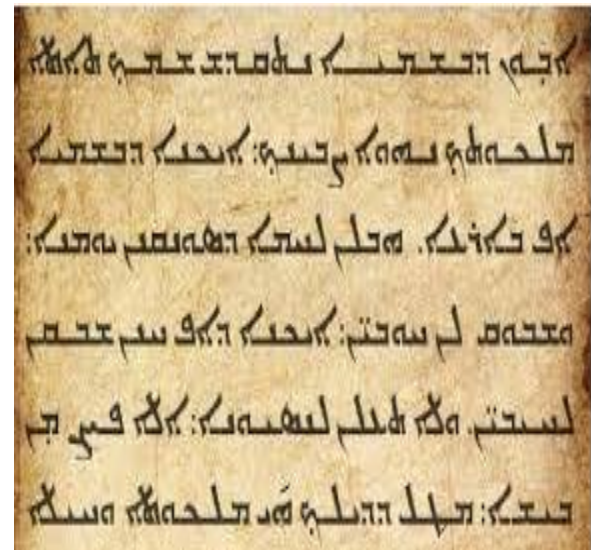 ܐܒܘܢ ܕܒܫܡܝܐ ܢܬܩܕܫ ܫܡܟ ܬܐܬܐ
ܡܠܟܘܬܟ ܢܗܘܐ ܨܒܝܢܟ: ܐܝܟܢܐ ܕܒܫܡܝܐ
ܐܦ ܒܐܪܥܐ. ܗܒܠܢ ܠܚܡܐ ܕܣܘܢܩܢܢ ܝܘܡܢܐ:
ܘܫܒܘܩ ܠܢ ܚܘܒܝ̈ܢ: ܐܝܟܢܐ ܕܐܦ ܚܢܢ ܫܒܩܢ
ܠܚܝܒܝ̈ܢ. ܘܠܐ ܬܥܠܢ ܠܢܣܝܘܢܐ: ܐܠܐ ܦܨܢ ܡܢ
ܒܝܫܐ: ܡܛܠ ܕܕܝܠܟ ܗ̄ܝ ܡܠܟܘܬܐ ܘܚܝܠܐ